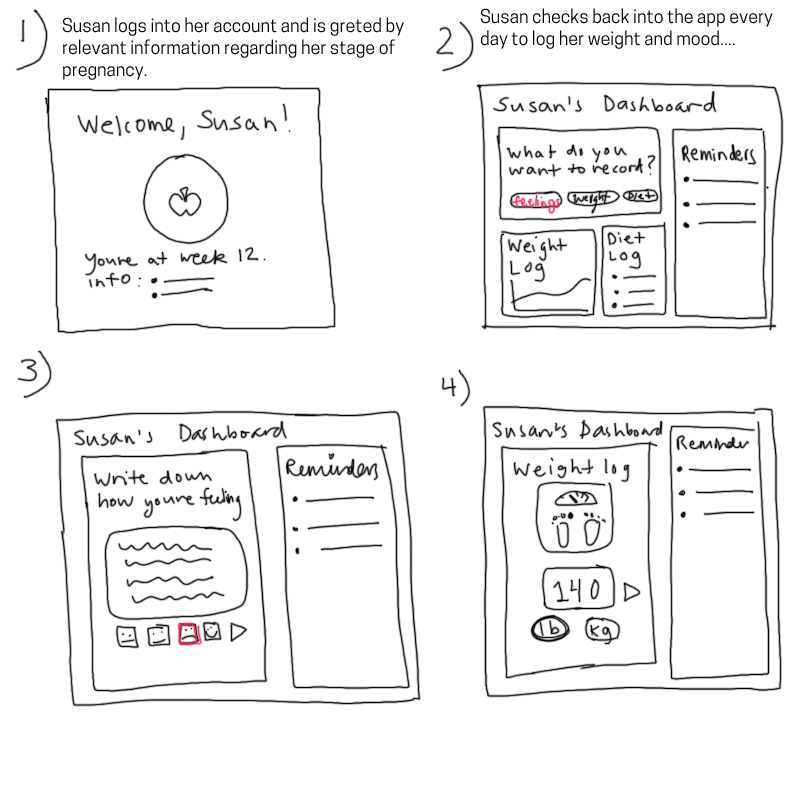 1)
Susan logs into her account and is greted by
relevant information regarding her stage of
pregnancy.
Welcome, Susan!
Youre at week 12.
info:
2)
Susan checks back into the app every
day to log her weight and mood....
Susan's Dashboard
What do you
want to record?
feelings Weight Diet
Weight
Log
Diet
Log
Reminders
3)
Susan's Dashboard
Write down
how youre feeling
Reminders
4)
Susan's Dashboard
Weight log
140
lb kg
Reminder